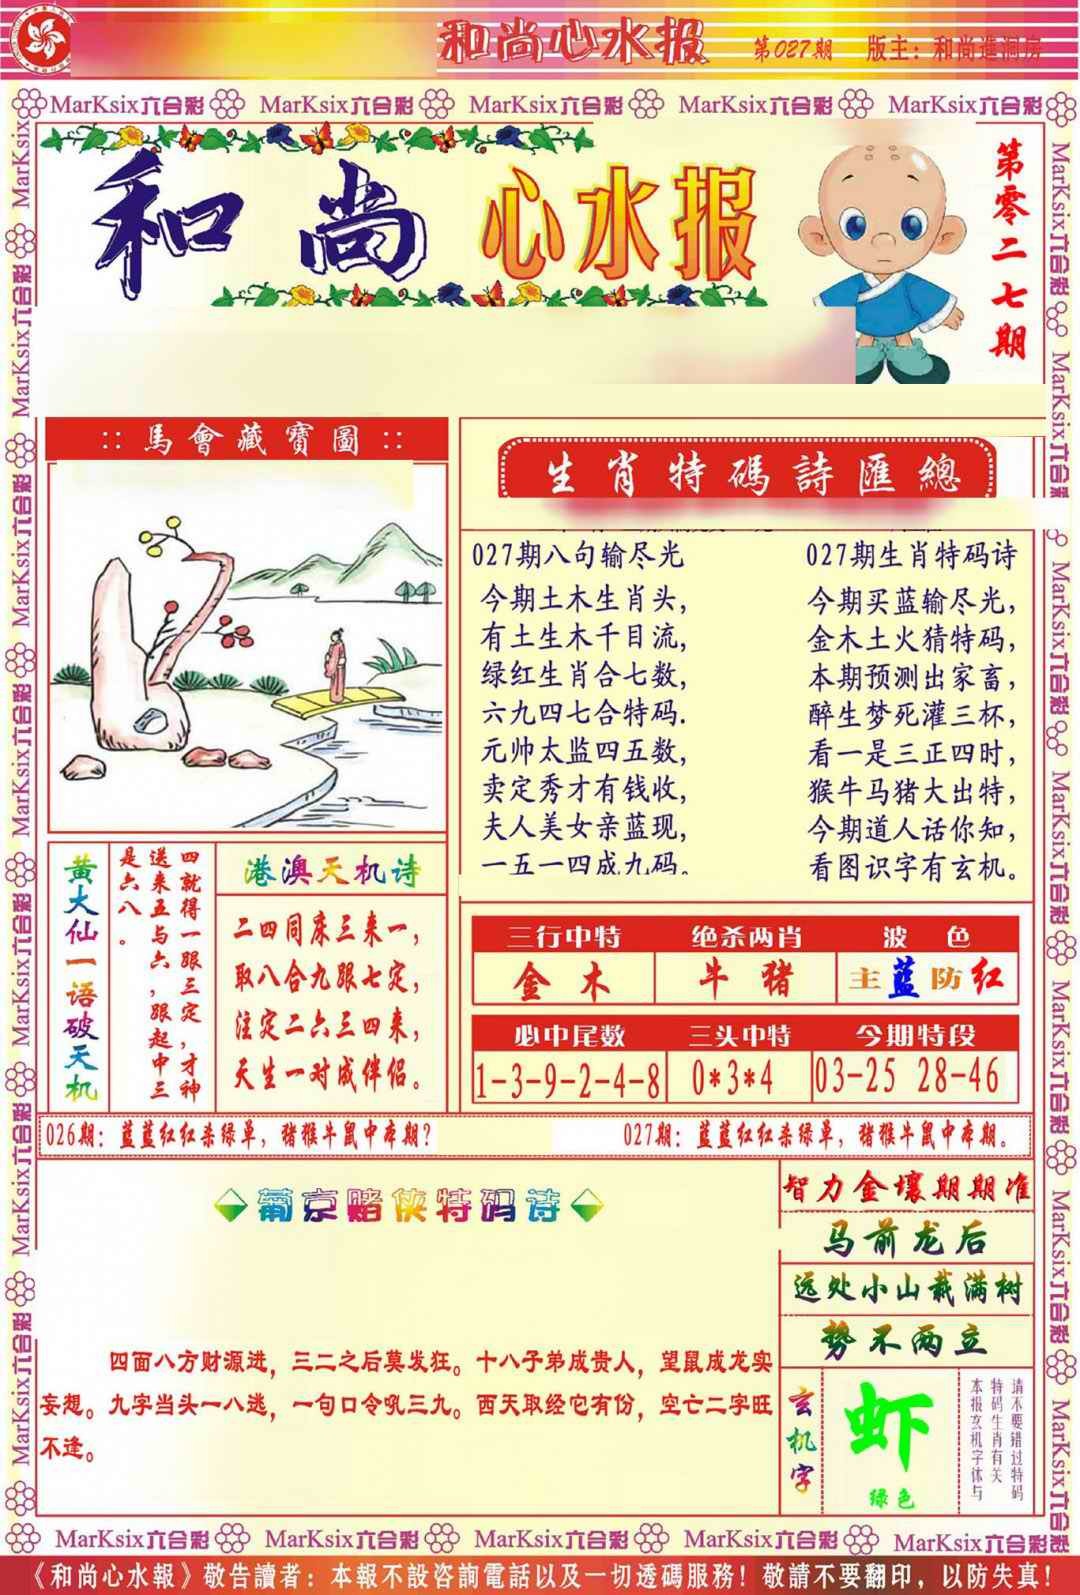 和尚心水报 第027期 版主：和尚進洞房
MarKsix六合彩 MarKsix六合彩 MarKsix六合彩 MarKsix六合彩 MarKsix六合彩
和尚心水报
第零二七期
::馬會藏寶圖::
生肖特碼詩匯總
027期八句输尽光
今期土木生肖头,
有土生木千目流,
绿红生肖合七数,
六九四七合特码.
元帅太监四五数,
卖定秀才有钱收,
夫人美女亲蓝现,
一五一四成九码.
027期生肖特码诗
今期买蓝输尽光,
金木土火猜特码,
本期预测出家畜,
醉生梦死灌三杯,
看一是三正四时,
猴牛马猪大出特,
今期道人话你知,
看图识字有玄机。
黄大仙一语破天机
四就得一跟三定，才神
送来五与六，跟起中三
是六八。
港澳天机诗
二四同床三来一,
取八合九跟七定,
注定二六三四来,
天生一对成伴侣。
三行中特 绝杀两肖 波色
金木 牛猪 主蓝防红
必中尾数 三头中特 今期特段
1-3-9-2-4-8 0*3*4 03-25 28-46
026期：蓝蓝红红杀绿单，猪猴牛鼠中本期？ 027期：蓝蓝红红杀绿单，猪猴牛鼠中本期。
葡京赌侠特码诗
四面八方财源进，三二之后莫发狂。十八子弟成贵人，望鼠成龙实
妄想。九字当头一八逃，一句口令吼三九。西天取经它有份，空亡二字旺
不逢。
智力金壤期期准
马前龙后
远处小山栽满树
势不两立
玄机字
虾
绿色
请不要错过特码
特码生肖有关
本报玄机字体与
MarKsix六合彩 MarKsix六合彩 MarKsix六合彩 MarKsix六合彩 MarKsix六合彩
《和尚心水報》敬告讀者：本報不設咨詢電話以及一切透碼服務！敬請不要翻印，以防失真！